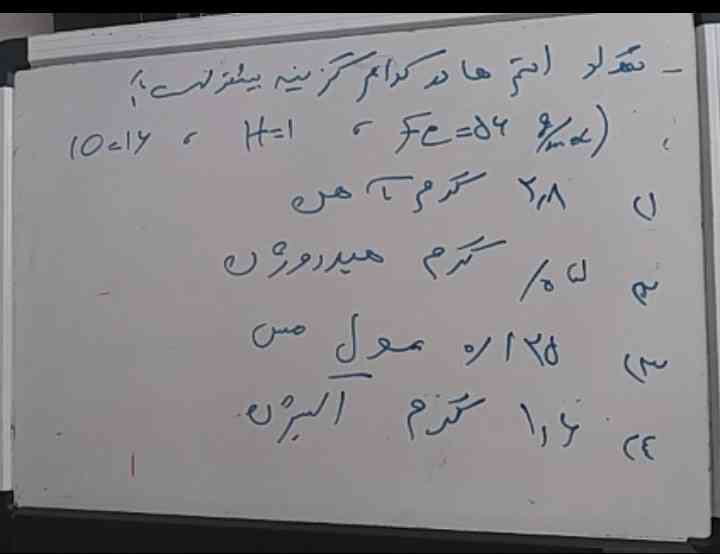 - تعداد اتم ها در کدام گزینه بیشتر است؟
(O=16 ، H=1 ، Fe=56 g/mol)
۱) ۲,۸ گرم آهن
۲) ۰/۵ گرم هیدروژن
۳) ۰/۱۲۵ مول مس
۴) ۱,۶ گرم اکسیژن